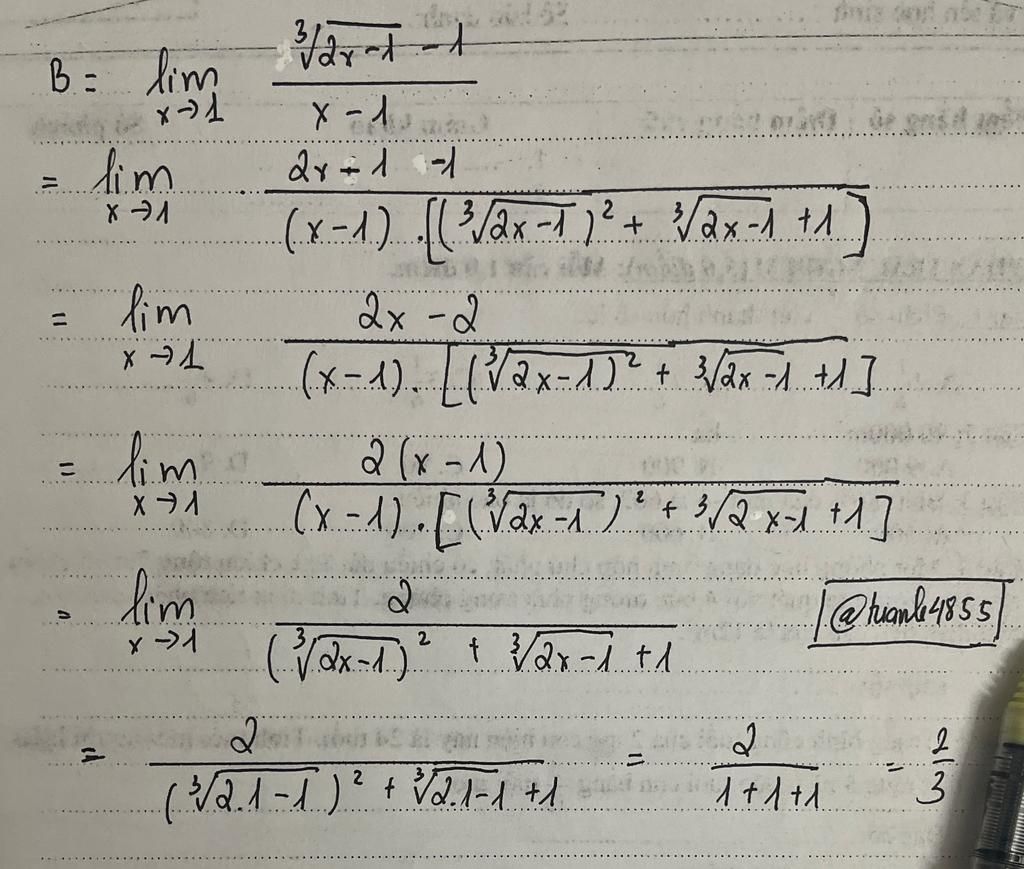 B = lim x→1 (∛(2x-1) - 1)/(x - 1)
= lim x→1 (2x - 1 -1)/((x-1).[(∛(2x-1))² + ∛(2x-1) +1])
= lim x→1 (2x - 2)/((x-1).[(∛(2x-1))² + ∛(2x-1) +1])
= lim x→1 (2(x-1))/((x-1).[(∛(2x-1))² + ∛(2x-1) +1])
= lim x→1 2/((∛(2x-1))² + ∛(2x-1) +1)
= 2/((∛(2.1-1))² + ∛(2.1-1) +1) = 2/(1+1+1) = 2/3